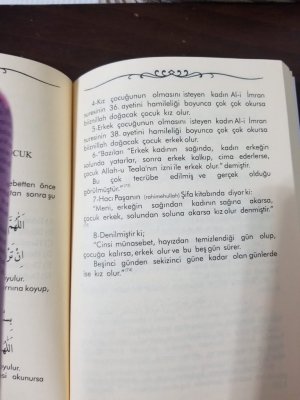 OCUK
sebetten önce
n sonra şu
اَللّٰهُمَّ
yulur.
rnına koyup,
oyulur.
esi okunursa
4-Kız çocuğunun olmasını isteyen kadın Al-i İmran
suresinin 36. ayetini hamileliği boyunca çok çok okursa
biiznillah doğacak çocuk kız olur.
5-Erkek çocuğunun olmasını isteyen kadın Al-i İmran
suresinin 38. ayetini hamileliği boyunca çok çok okursa
biiznillah doğacak çocuk erkek olur.
6-"Bazıları "Erkek kadının sağında, kadın erkeğin
solunda yatarlar, sonra erkek kalkıp, cima ederlerse,
çocuk Allah-u Teala'nın izni ile erkek olur." demiştir.
Bu çok tecrübe edilmiş ve gerçek olduğu
görülmüştür."
7-Hacı Paşanın (rahimehullah) Şifa kitabında diyor ki:
"Meni, erkeğin sağından kadının sağına akarsa,
çocuk erkek, solundan soluna akarsa kız olur denmiştir."
8-Denilmiştir ki;
"Cinsi münasebet, hayızdan temizlendiği gün olup,
çocuğa kalırsa, erkek olur ve bu beş gün sürer.
Beşinci günden sekizinci güne kadar olan günlerde
ise kız olur."